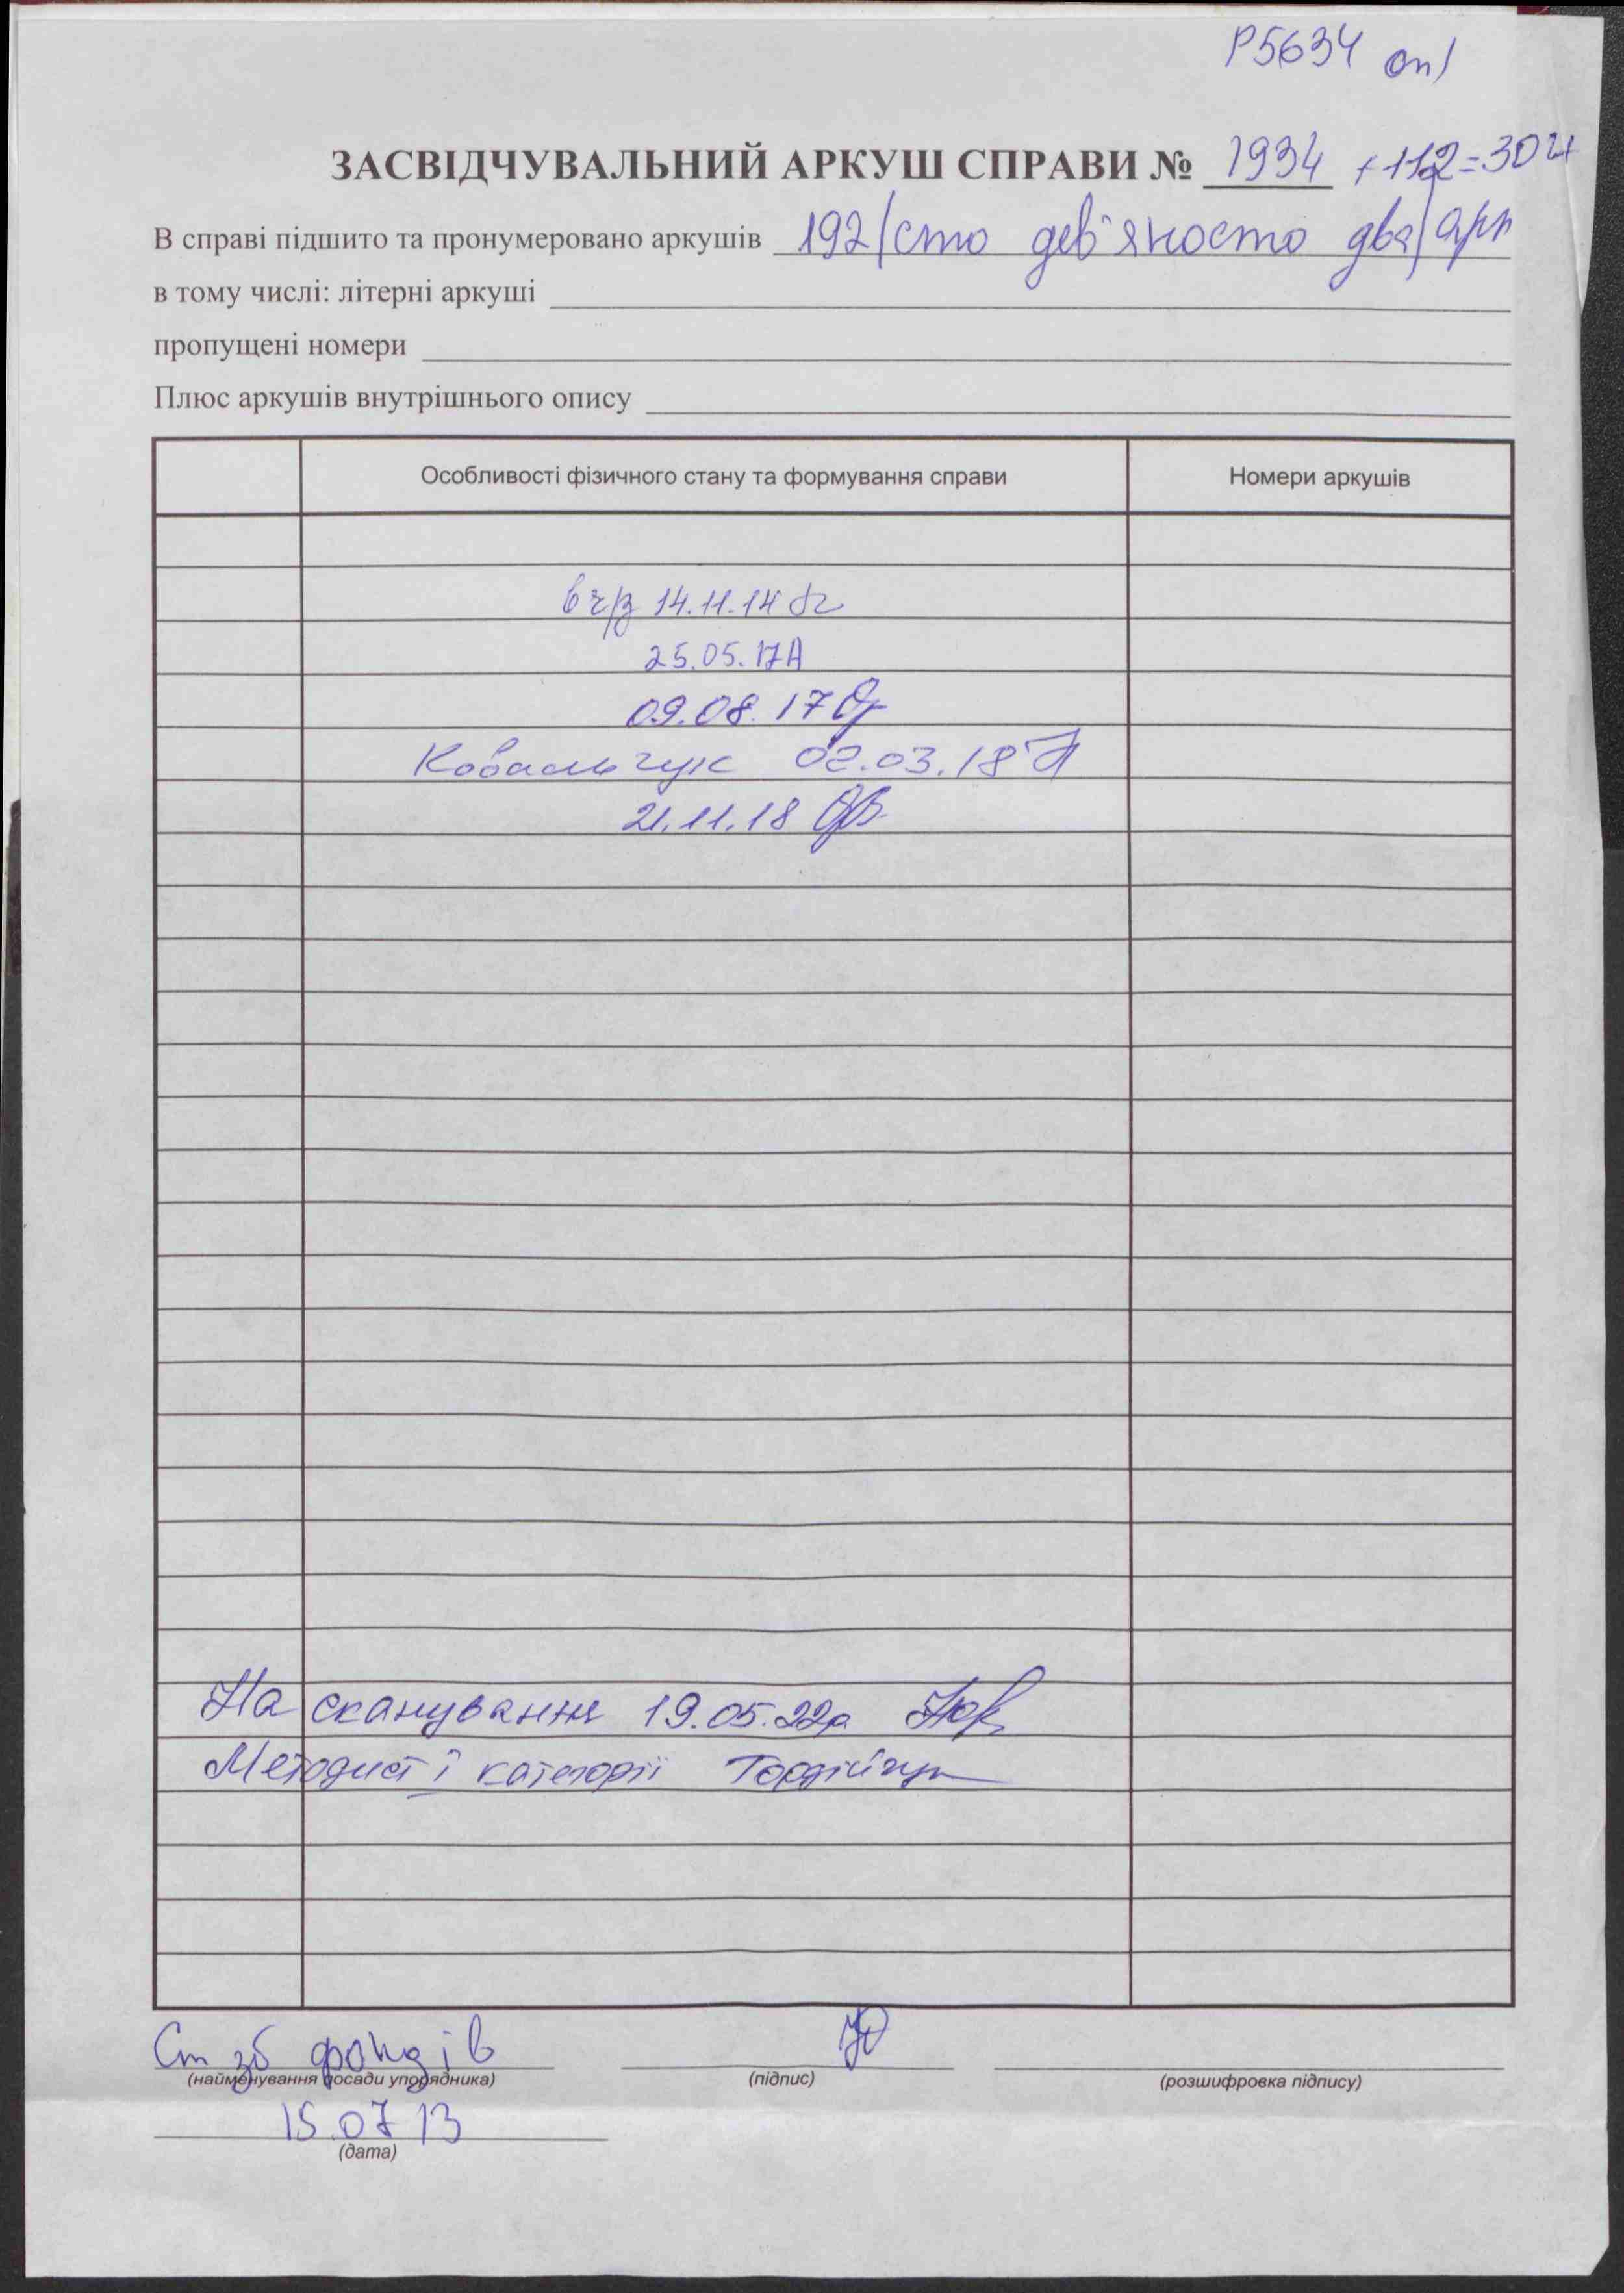 Р5634 оп1
ЗАСВІДЧУВАЛЬНИЙ АРКУШ СПРАВИ № 1934 +112=304
В справі підшито та пронумеровано аркушів 192/сто дев'яносто два/арк
в тому числі: літерні аркуші
пропущені номери
Плюс аркушів внутрішнього опису
Особливості фізичного стану та формування справи Номери аркушів
в ч/з 14.11.14
25.05.17
09.08.17
Ковальчук 02.03.18
21.11.18
На сканування 19.05.22р
Методист І категорії Гордійчук
Ст зб фондів
(найменування посади упорядника) (підпис) (розшифровка підпису)
15.07 13
(дата)